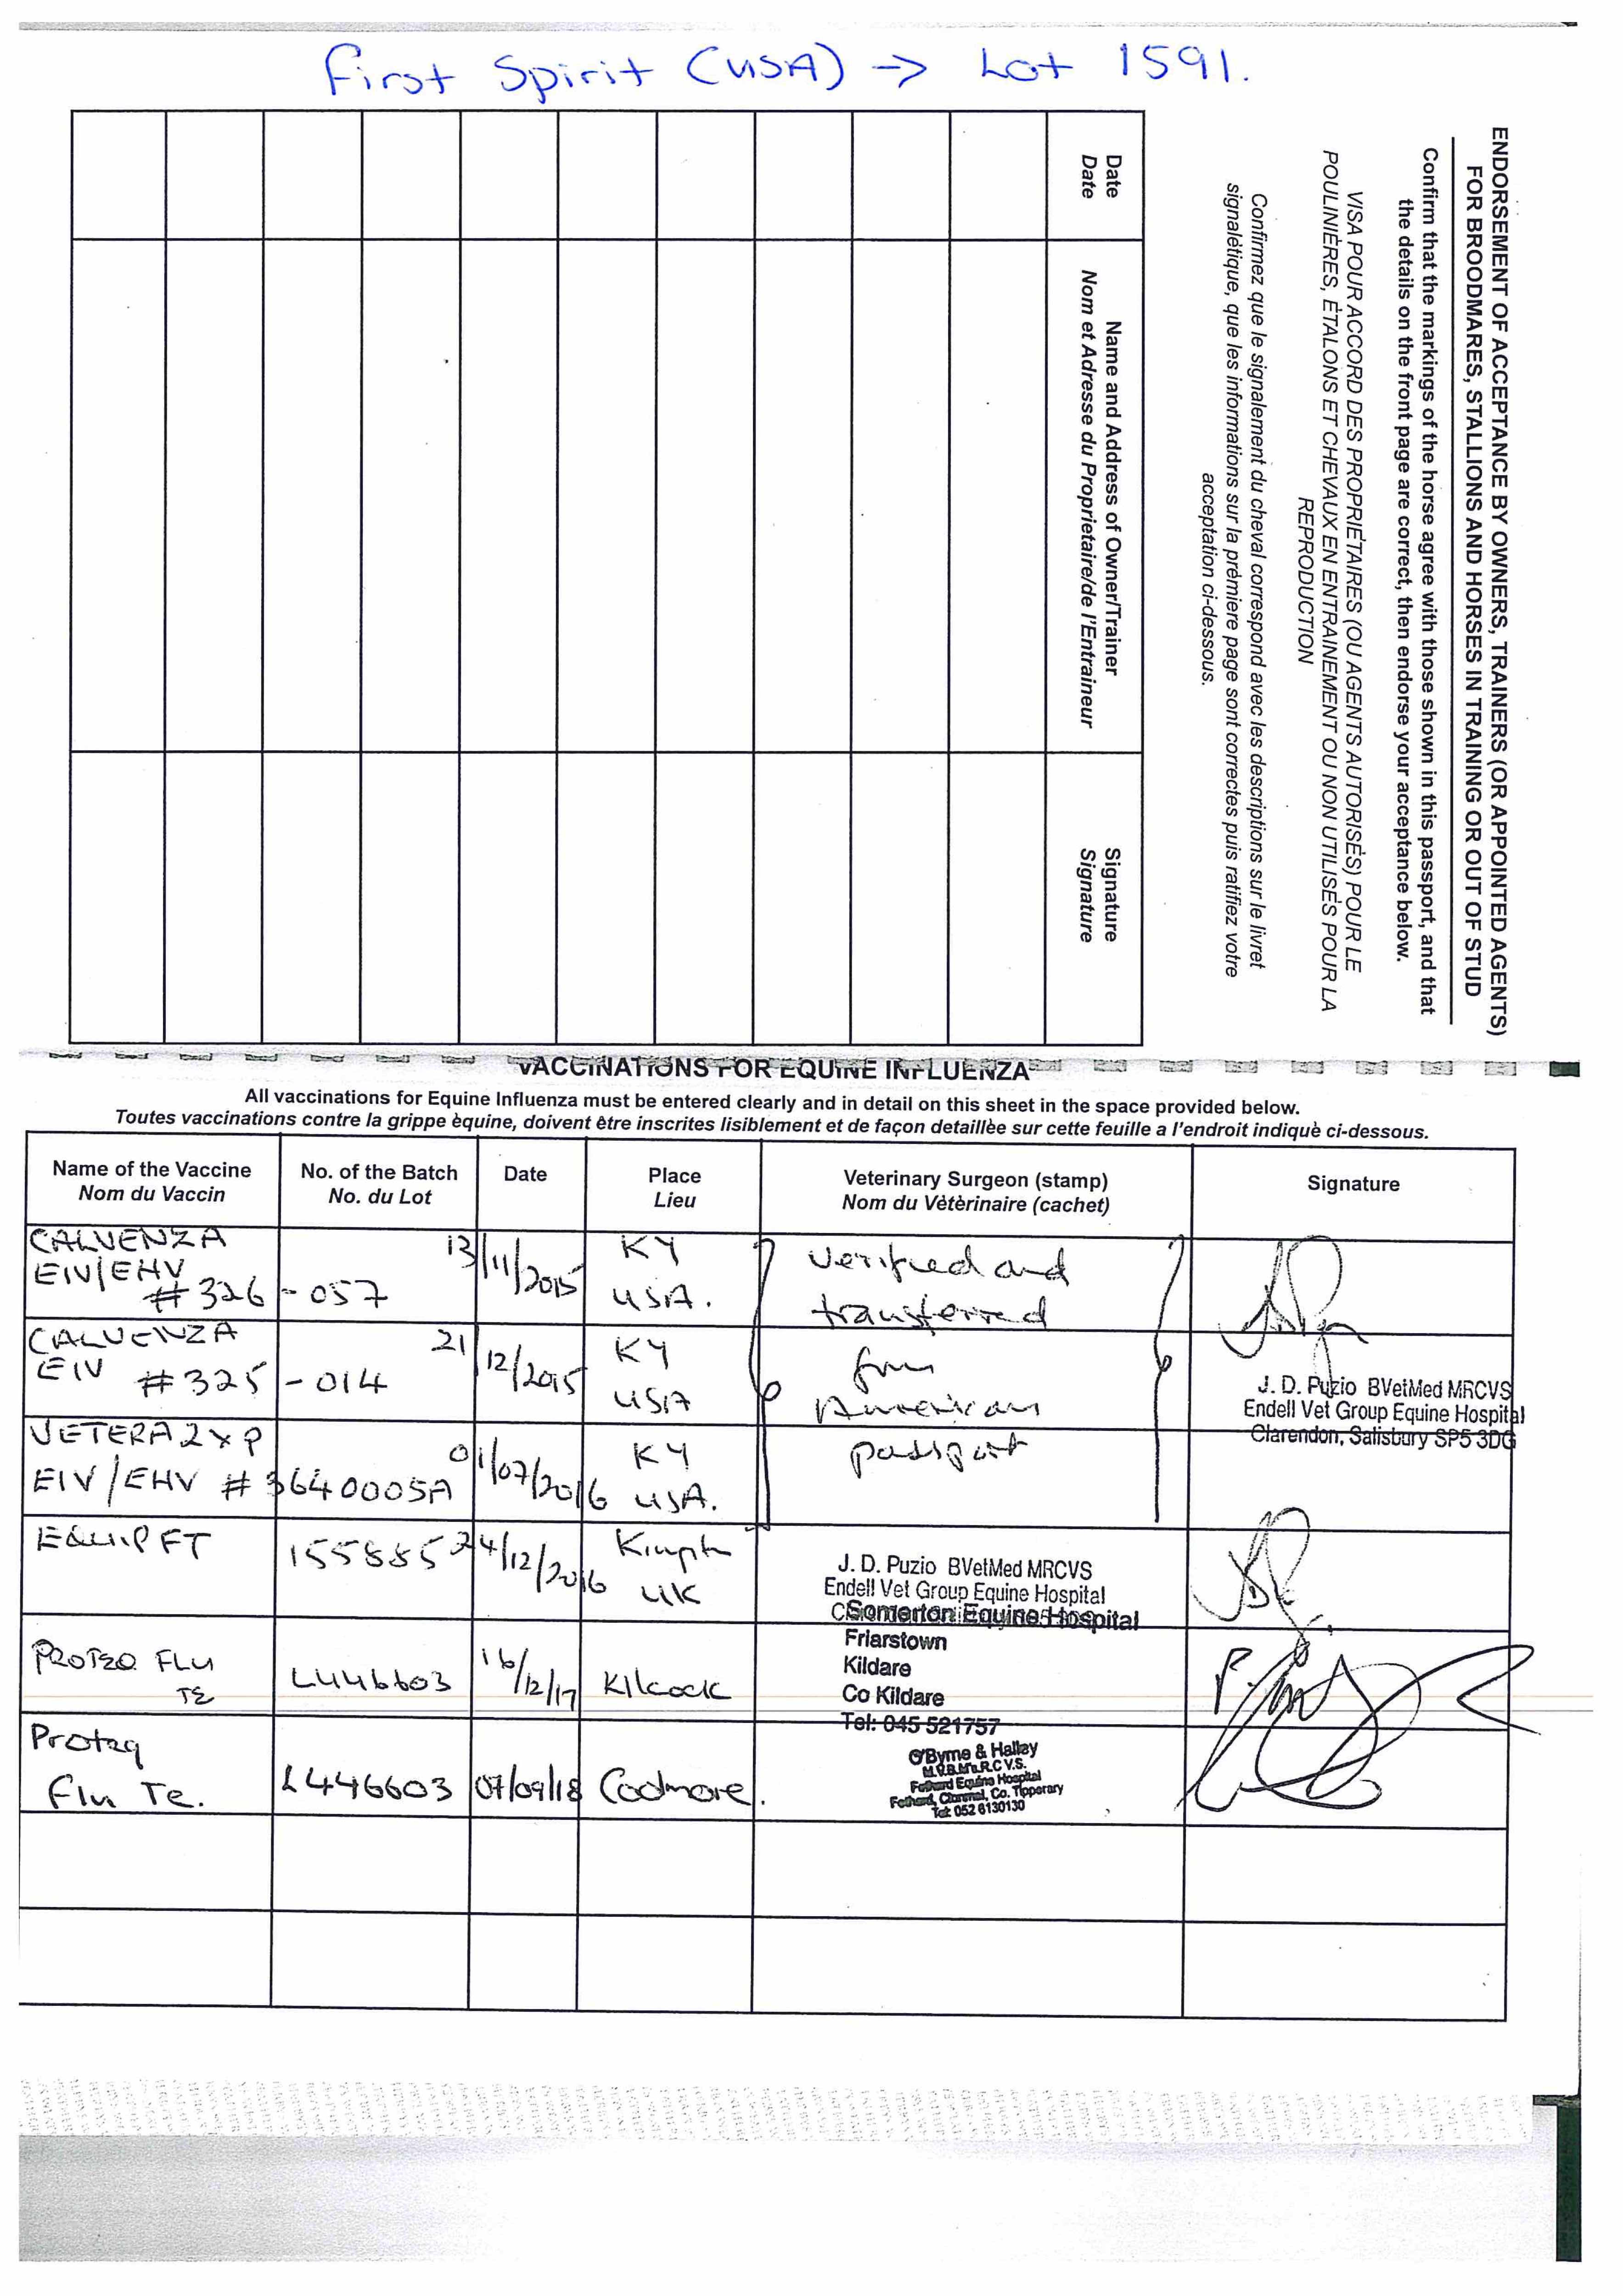 First Spirit (USA) → Lot 1591.
ENDORSEMENT OF ACCEPTANCE BY OWNERS, TRAINERS (OR APPOINTED AGENTS)
FOR BROODMARES, STALLIONS AND HORSES IN TRAINING OR OUT OF STUD
Confirm that the markings of the horse agree with those shown in this passport, and that
the details on the front page are correct, then endorse your acceptance below.
VISA POUR ACCORD DES PROPRIÉTAIRES (OU AGENTS AUTORISÉS) POUR LE
POULINIÈRES, ÈTALONS ET CHEVAUX EN ENTRAINEMENT OU NON UTILISÉS POUR LA
REPRODUCTION
Confirmez que le signalement du cheval correspond avec les descriptions sur le livret
signalétique, que les informations sur la prèmiere page sont correctes puis ratifiez votre
acceptation ci-dessous.
Date
Date
Name and Address of Owner/Trainer
Nom et Adresse du Proprietaire/de l'Entraineur
Signature
Signature
VACCINATIONS FOR EQUINE INFLUENZA
All vaccinations for Equine Influenza must be entered clearly and in detail on this sheet in the space provided below.
Toutes vaccinations contre la grippe èquine, doivent être inscrites lisiblement et de façon detaillèe sur cette feuille a l'endroit indiquè ci-dessous.
Name of the Vaccine
Nom du Vaccin
No. of the Batch
No. du Lot
Date
Place
Lieu
Veterinary Surgeon (stamp)
Nom du Vètèrinaire (cachet)
Signature
CALVENZA
EIV/EHV
#326-057
13/11/2015
KY
USA.
verified and
transferred
CALVENZA
EIV #325-014
21/12/2015
KY
USA
from
American
J. D. Puzio BVetMed MRCVS
Endell Vet Group Equine Hospital
Clarendon, Salisbury SP5 3DG
VETERA 2XP
EIV/EHV #3640005A
01/07/2016
KY
USA.
passport
EQUIP FT
155885
24/12/2016
UK
J. D. Puzio BVetMed MRCVS
Endell Vet Group Equine Hospital
PROTEQ FLU
TE
L446603
16/12/17
Kilcock
Somerton Equine Hospital
Friarstown
Kildare
Co Kildare
Tel: 045 521757
Proteq
Flu Te.
L446603
07/09/18
Coolmore.
O'Byrne & Halley
M.V.B.M.R.C.V.S.
Fethard Equine Hospital
Fethard, Clonmel, Co. Tipperary
Tel: 052 6130130